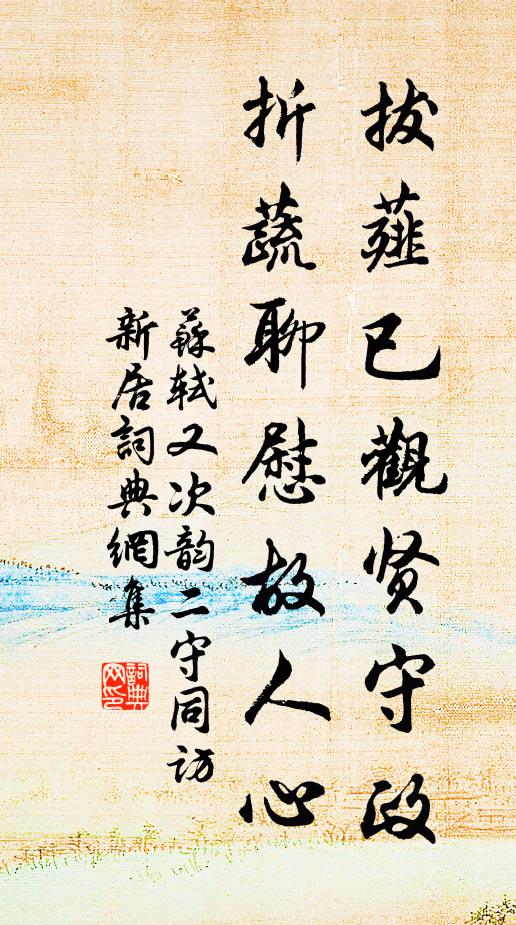 拔薤已觀贤守政
折蔬聊慰故人心
蘇轼又次韵二守同访
新居詞典網集
詞典
网印